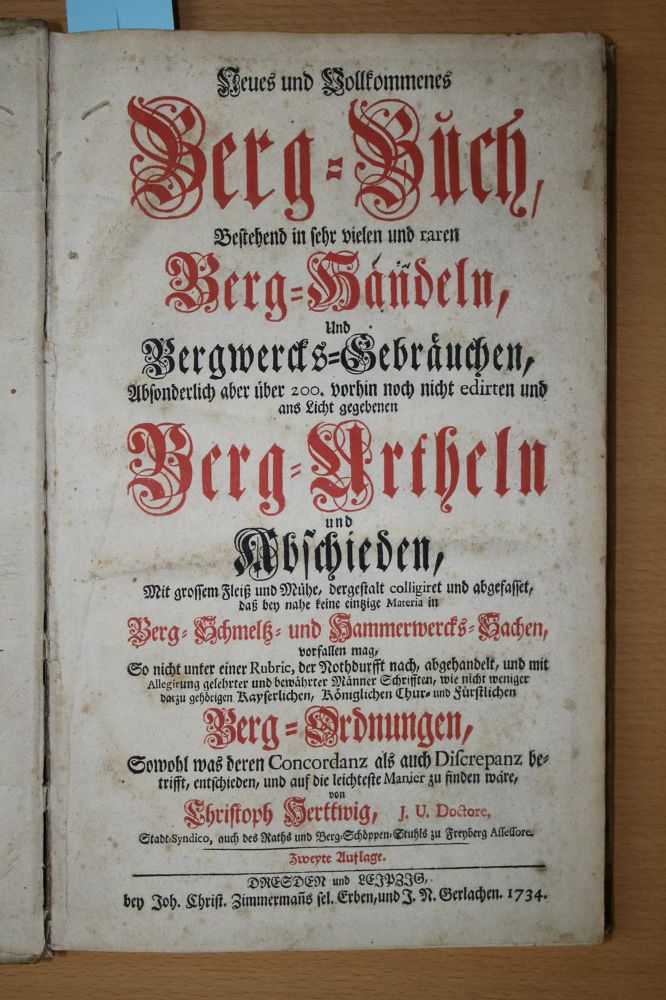 Neues und Vollkommenes
Berg-Buch,
Bestehend in sehr vielen und raren
Berg-Händeln,
Und
Bergwercks-Gebräuchen,
Absonderlich aber über 200. vorhin noch nicht edirten und
ans Licht gegebenen
Berg-Urtheln
und
Abschieden,
Mit grossem Fleiß und Mühe, dergestalt colligiret und abgefasset,
daß bey nahe keine eintzige Materia in
Berg- Schmeltz- und Hammerwercks-Sachen,
vorfallen mag,
So nicht unter einer Rubric, der Nothdurfft nach, abgehandelt, und mit
Allegirung gelehrter und bewährter Männer Schrifften, wie nicht weniger
darzu gehörigen Kayserlichen, Königlichen Chur- und Fürstlichen
Berg-Ordnungen,
Sowohl was deren Concordanz als auch Discrepanz be-
trifft, entschieden, und auf die leichteste Manier zu finden wäre,
von
Christoph Herttwig, J. U. Doctore,
Stadt-Syndico, auch des Raths und Berg-Schöppen-Stuhls zu Freyberg Assessore.
Zweyte Auflage.
DRESDEN und LEIPZIG,
bey Joh. Christ. Zimmermañs sel. Erben, und J. N. Gerlachen. 1734.